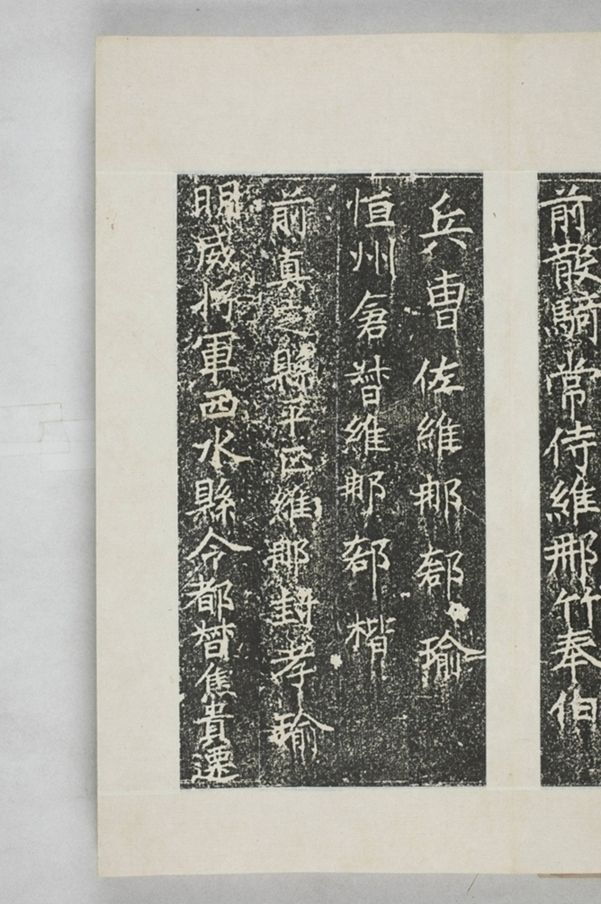 前散騎常侍維那竹奉伯
兵曹佐維那郤瑜
恒州倉督維那郤楷
前真定縣平正維那封孝瑜
明威將軍西水縣令都督焦貴遷